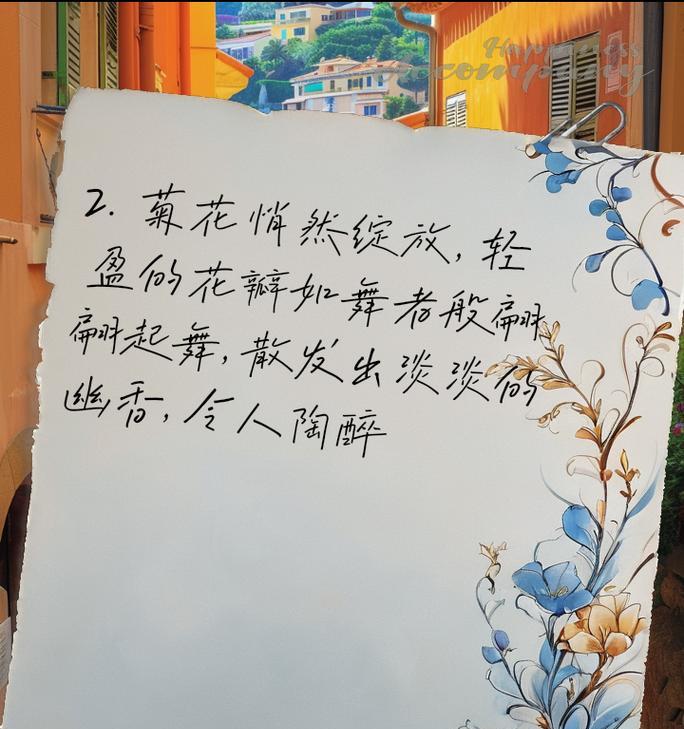 Happiness
Accompany
2. 菊花悄然绽放，轻
盈的花瓣如舞者般翩
翩起舞，散发出淡淡的
幽香，令人陶醉